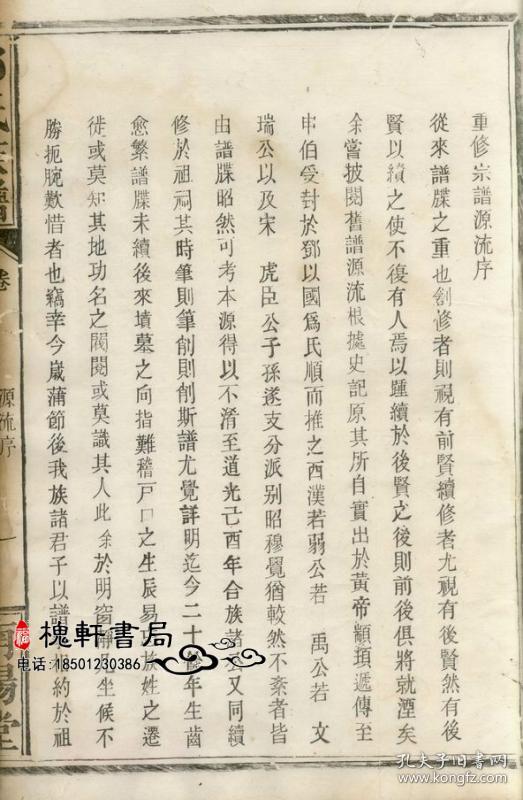 重修宗譜源流序
從來譜牒之重也創修者則視有前賢續修者尤視有後賢然有後
賢以續之使不復有人焉以踵續於後賢之後則前後俱將就湮矣
余嘗披閱舊譜源流根據史記原其所自實出於黃帝顓頊遞傳至
申伯受封於鄧以國為氏順而推之西漢若弱公若 禹公若 文
瑞公以及宋 虎臣公子孫遂支分派別昭穆覺猶較然不紊者皆
由譜牒昭然可考本源得以不淆至道光己酉年合族諸公又同續
修於祖祠其時筆則筆削則削斯譜尤覺詳明迄今二十餘年生齒
愈繁譜牒未續後來墳墓之向指難稽戶口之生辰易 族姓之遷
徙或莫知其地功名之閥閱或莫識其人此余於明窗靜几坐候不
勝扼腕歎惜者也竊幸今歲蒲節後我族諸君子以譜 相約於祖
氏族譜
卷
源流序
一
南陽堂
槐軒書局
电话:18501230386
孔夫子旧书网
www.kongfz.com